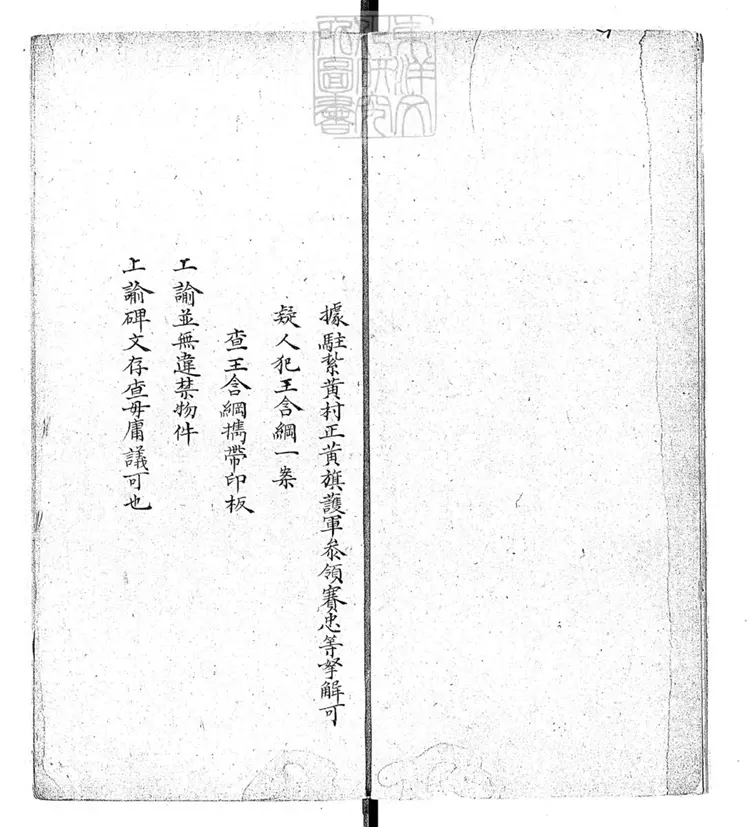 據駐紮黄村正黄旗護軍叅領賽忠等拏解可
疑人犯王含綱一案
查王含綱攜帶印板
工諭並無違禁物件
上諭碑文存查毋庸議可也
東洋文
化研究
所圖書